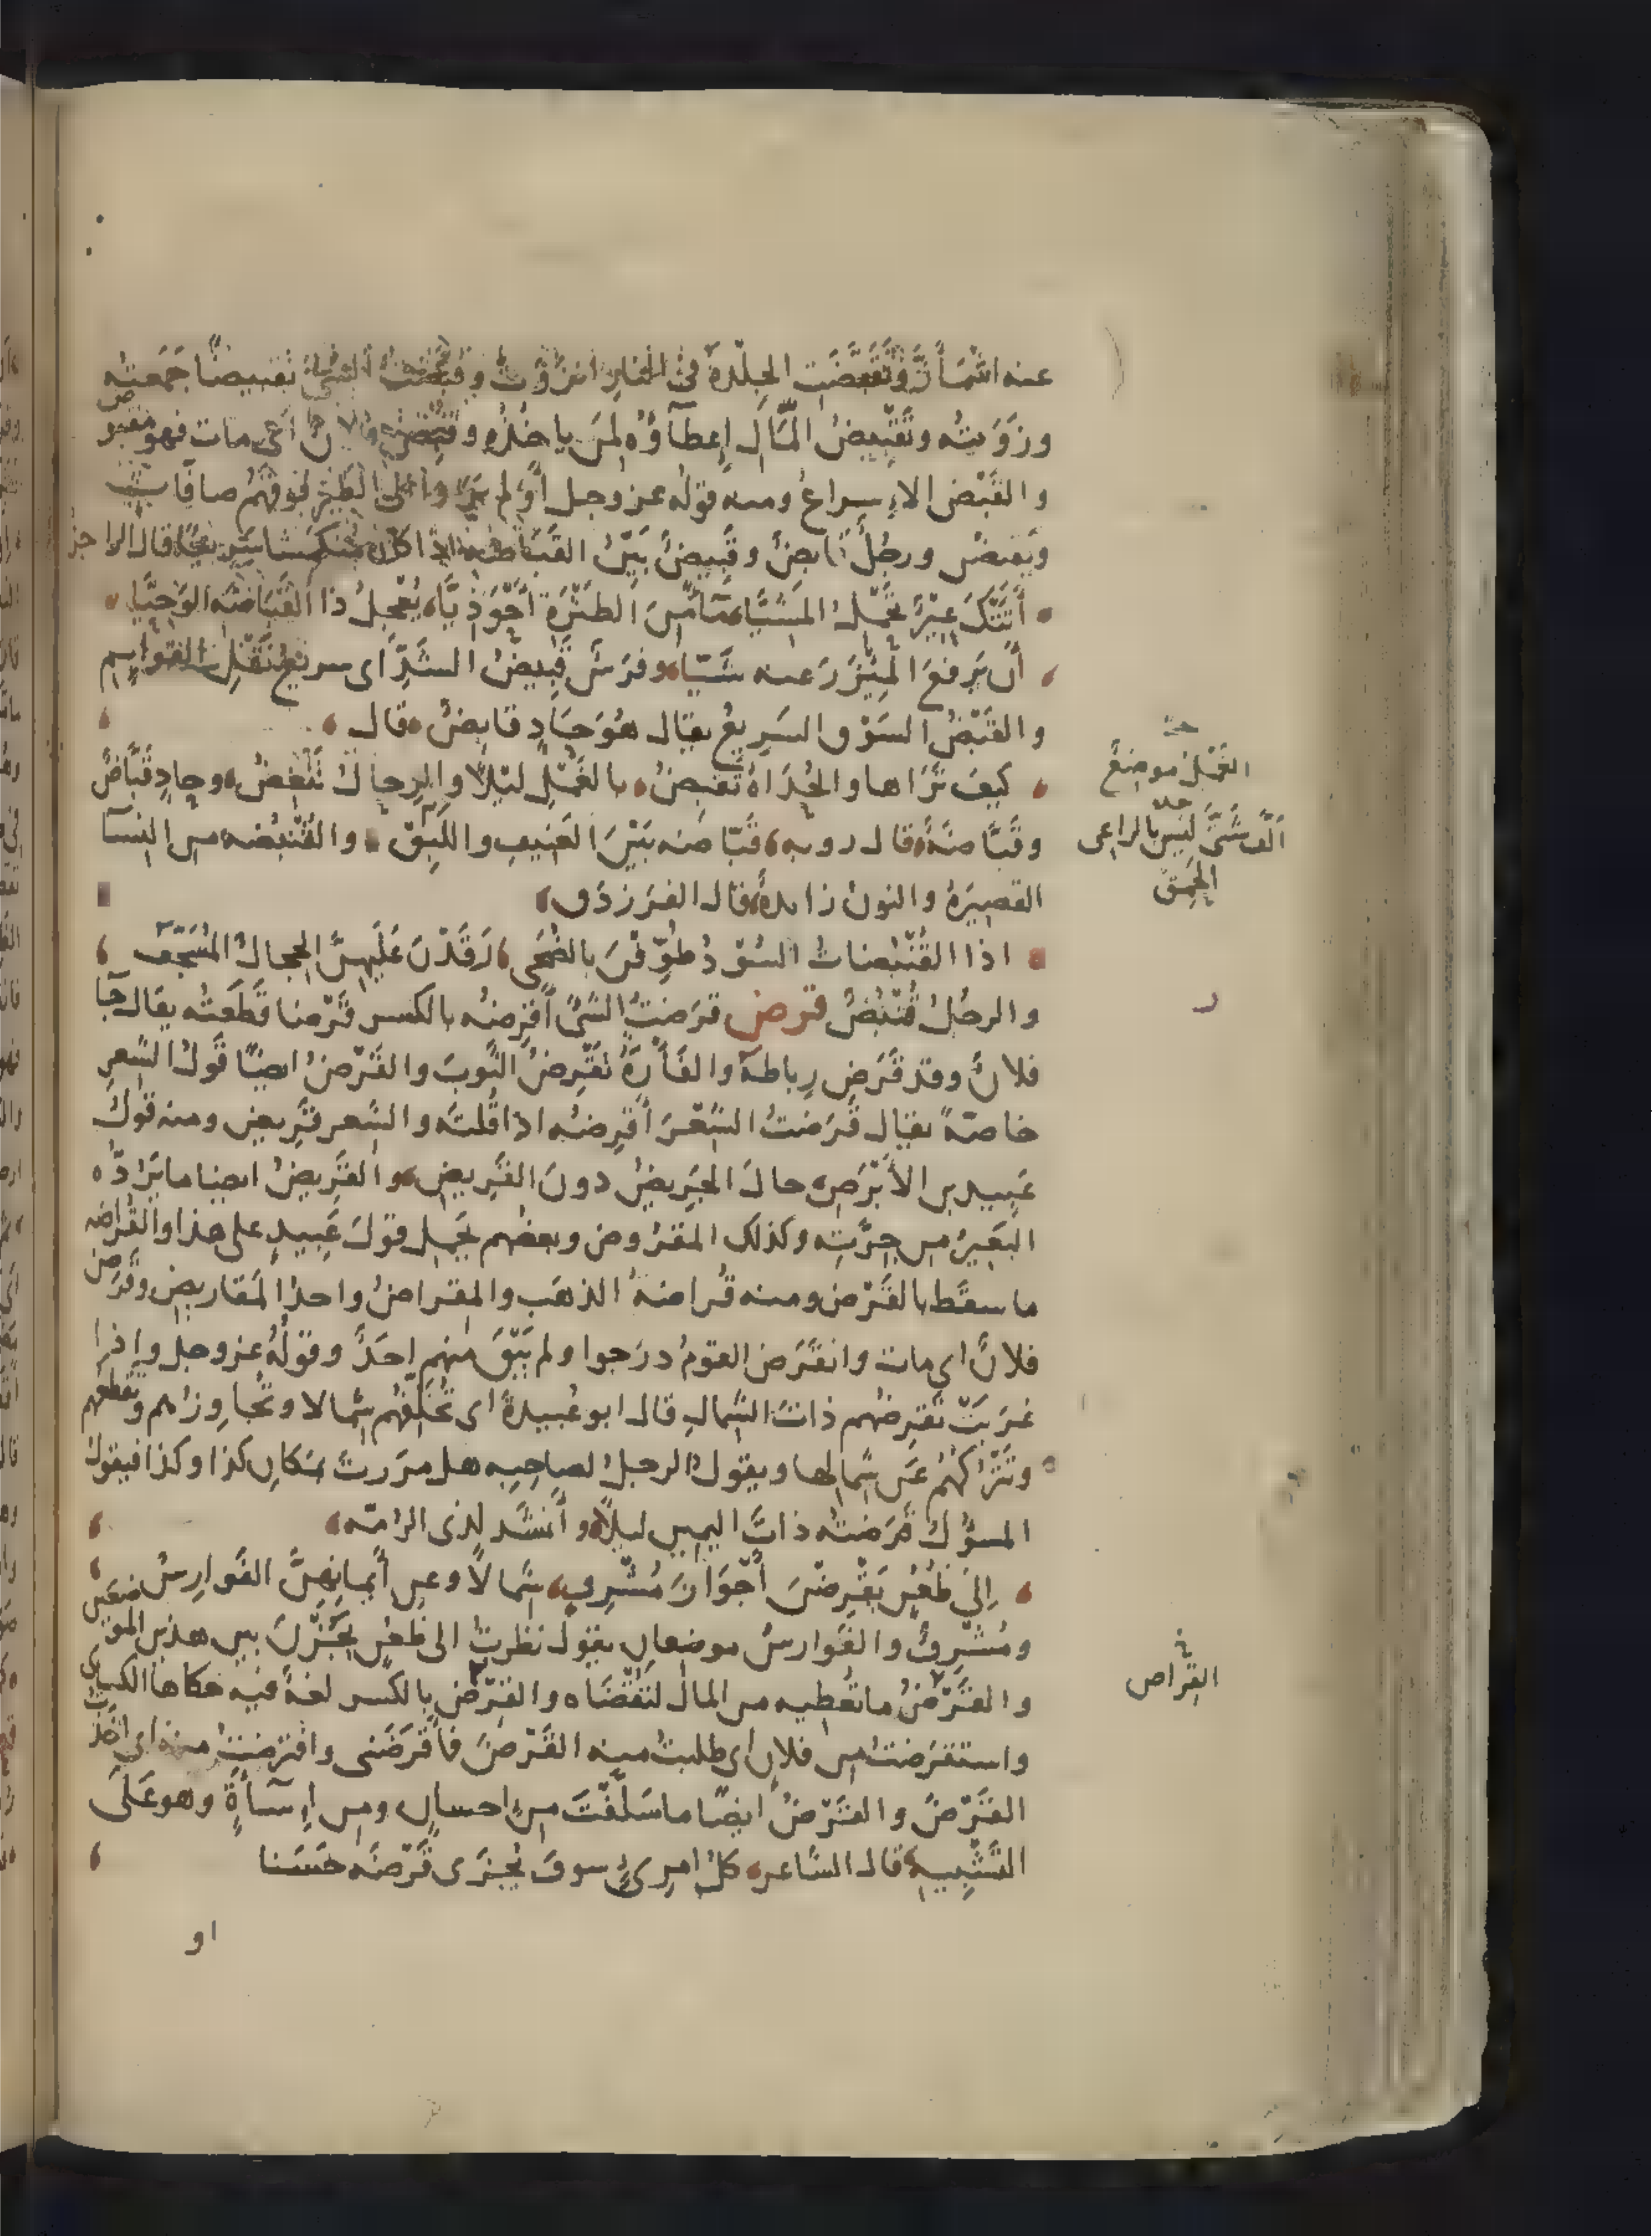 عنه اشمأزّ وتَقَبَّضَت الجِلْدَةُ في النار انزَوَت وقَبَّضْتُ الشيءَ تقبيضًا جَمَعتُه
وزَوَيتُه وتَقْبِيضُ المَالِ إعطآؤُه لمَن ياخذُه وقُبِضَ فلانٌ اى مات فهو مقبوض
والقَبْض الإسراعُ ومنه قولُه عز وجل أوَلم يَرَوا إلى الطَير فوقَهُم صافّاتٍ
ويَقبضن ورجُلٌ قابضٌ وقَبِيضٌ بَيّنُ القَبَاضة اذا كان منكمشا سَرِيعًا قال الراجز
أَتَتْكَ عِيرٌ تحمل المَشِيَّا مآءً مِنَ الطَثْرَةِ أَحْوَذِيَّا يُعْجِلُ ذا القَبَاضَةِ الوَحِيَّا
أَن يَرفعَ المِئْزَرَ عنه شَيّا وفرَسٌ قَبِيضُ الشَدِّ اى سريع نَقْلِ القوايِم
والقَبْضُ السَوْق السَرِيعُ يقال هُوَ حَادٍ قابِضٌ قال
كيفَ تَرَاها والحُدَاةُ تَقبِضُ بالغَمْلِ لَيْلًا والرِحالُ تَنْغِضُ وحادٍ قَبَّاضٌ
وقَبَّاضَةٌ قال روبه قَبّاضَه بَيْنَ العَنِيفِ واللَبِقْ والقُنْبُضه من النسآ
القصيرَةُ والنون زايدةٌ قال الفَرَزدَق
اذا القُنْبُضاتُ السُوْدُ طَوَّفْنَ بالضُحَى رَقَدْنَ عَلَيهِنَّ الحِجالُ المُسَجَّف
والرجُلُ قُنْبُضٌ قرض قرَضتُ الشَيَّ أقرِضُه بالكسر قَرْضا قَطَعتُه يقال جآ
فلانٌ وقد قَرَض رِباطَهُ والفَأرَةُ تَقْرِضُ الثَوبَ والقَرْضُ ايضًا قَولُ الشعرِ
خاصّةً يقال قَرَضتُ الشِعْرَ أقرِضُه اذا قُلتَه والشعر قَرِيض ومنه قولُ
عَبِيد بن الأَبْرَصِ حالَ الجَرِيضُ دونَ القَرِيضِ والقَرِيضُ ايضا ما يَرُدّه
البَعِيرُ من جِرّتِه وكذلك المقرُوض وبعضُهم يحمل قولَ عَبيدٍ على هذا والقُراضه
ما سقَط بالقَرْض ومنه قُراضَةُ الذهَب والمِقراضُ واحدُ المَقاريض وقَرَض
فلانٌ اى مات وانقَرَض القومُ درَجوا ولم يَبْقَ منهم احَدٌ وقولُه عز وجل واِذا
غرَبَتْ تَقرِضُهم ذاتَ الشمالِ قال ابو عُبيدةَ اى تُخَلِّفُهم شِمالا وتُجاوِزُهم وتَقطعهم
وتَتْرُكُهُم عَن شِمالِها ويقولُ الرجلُ لصاحِبِه هل مرَرتَ بمَكانِ كذا وكذا فيقولُ
المسؤُلُ قَرَضتُه ذاتَ اليمين ليلًا وأنشَد لذى الرُمّه
اِلى ظُعُنٍ يَقْرِضْنَ أَجْوَازَ مُشْرِفٍ شِمالًا وعن أَيمانِهِنَّ الفَوارِسُ
ومُشْرِفٌ والفَوارسُ موضِعان يقولُ نظرتُ الى ظُعُنٍ يَجُزْنَ بين هذين الموضعَين
والقَرْضُ ما تُعطِيه من المال لتُقْضَاه والقِرْض بالكَسر لغةٌ فيه حكاها الكسائى
واستقرَضتُ من فلان اى طلبتُ منه القَرْضَ فأَقرَضَنى واقترَضتُ منه اى اخذتُ
القَرْضَ والقَرْضُ ايضًا ما سَلَّفْتَ من احسانٍ ومن اِسآءةٍ وهو عَلَى
التَشْبِيهِ قال الشاعر كلُ امرِئٍ سوفَ يُجْزَى قَرْضَه حَسَنا
او
الغمل موضع
لَيسَ بالراعى
الحَمِق
القِراض